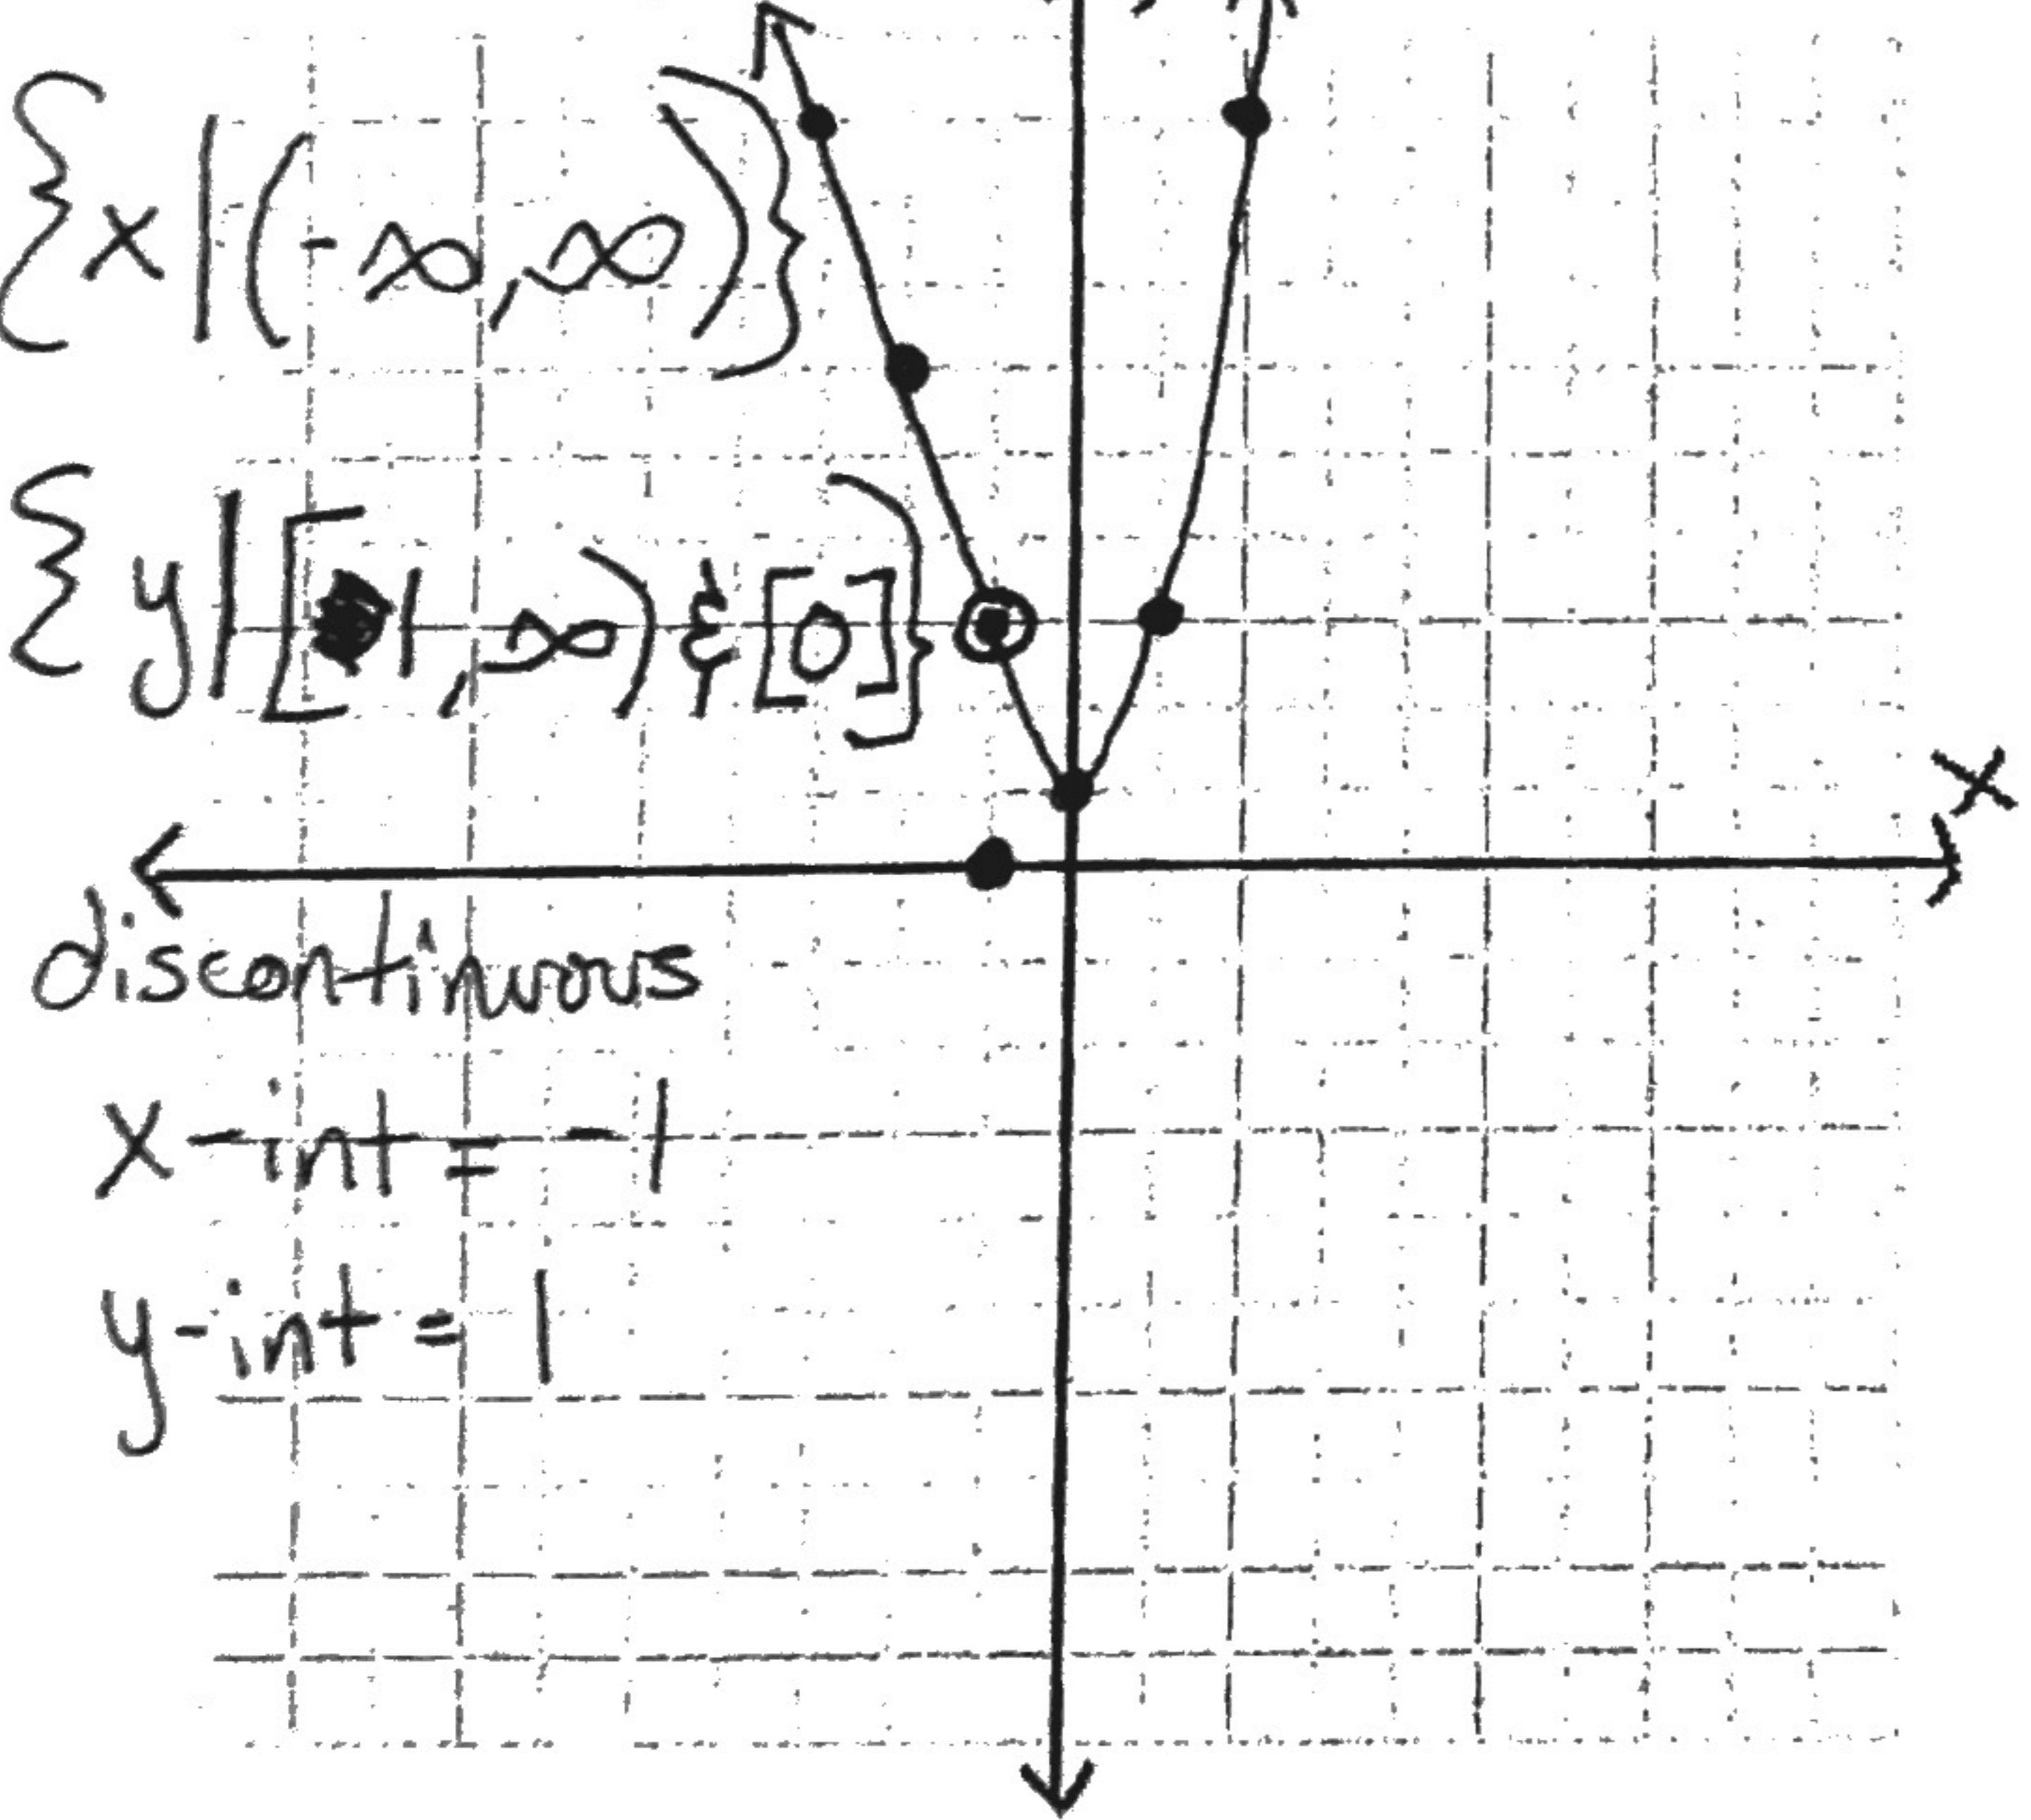 {x|(-∞,∞)}
{y|[1,∞) & [0]}
x
discontinuous
x-int = -1
y-int = 1